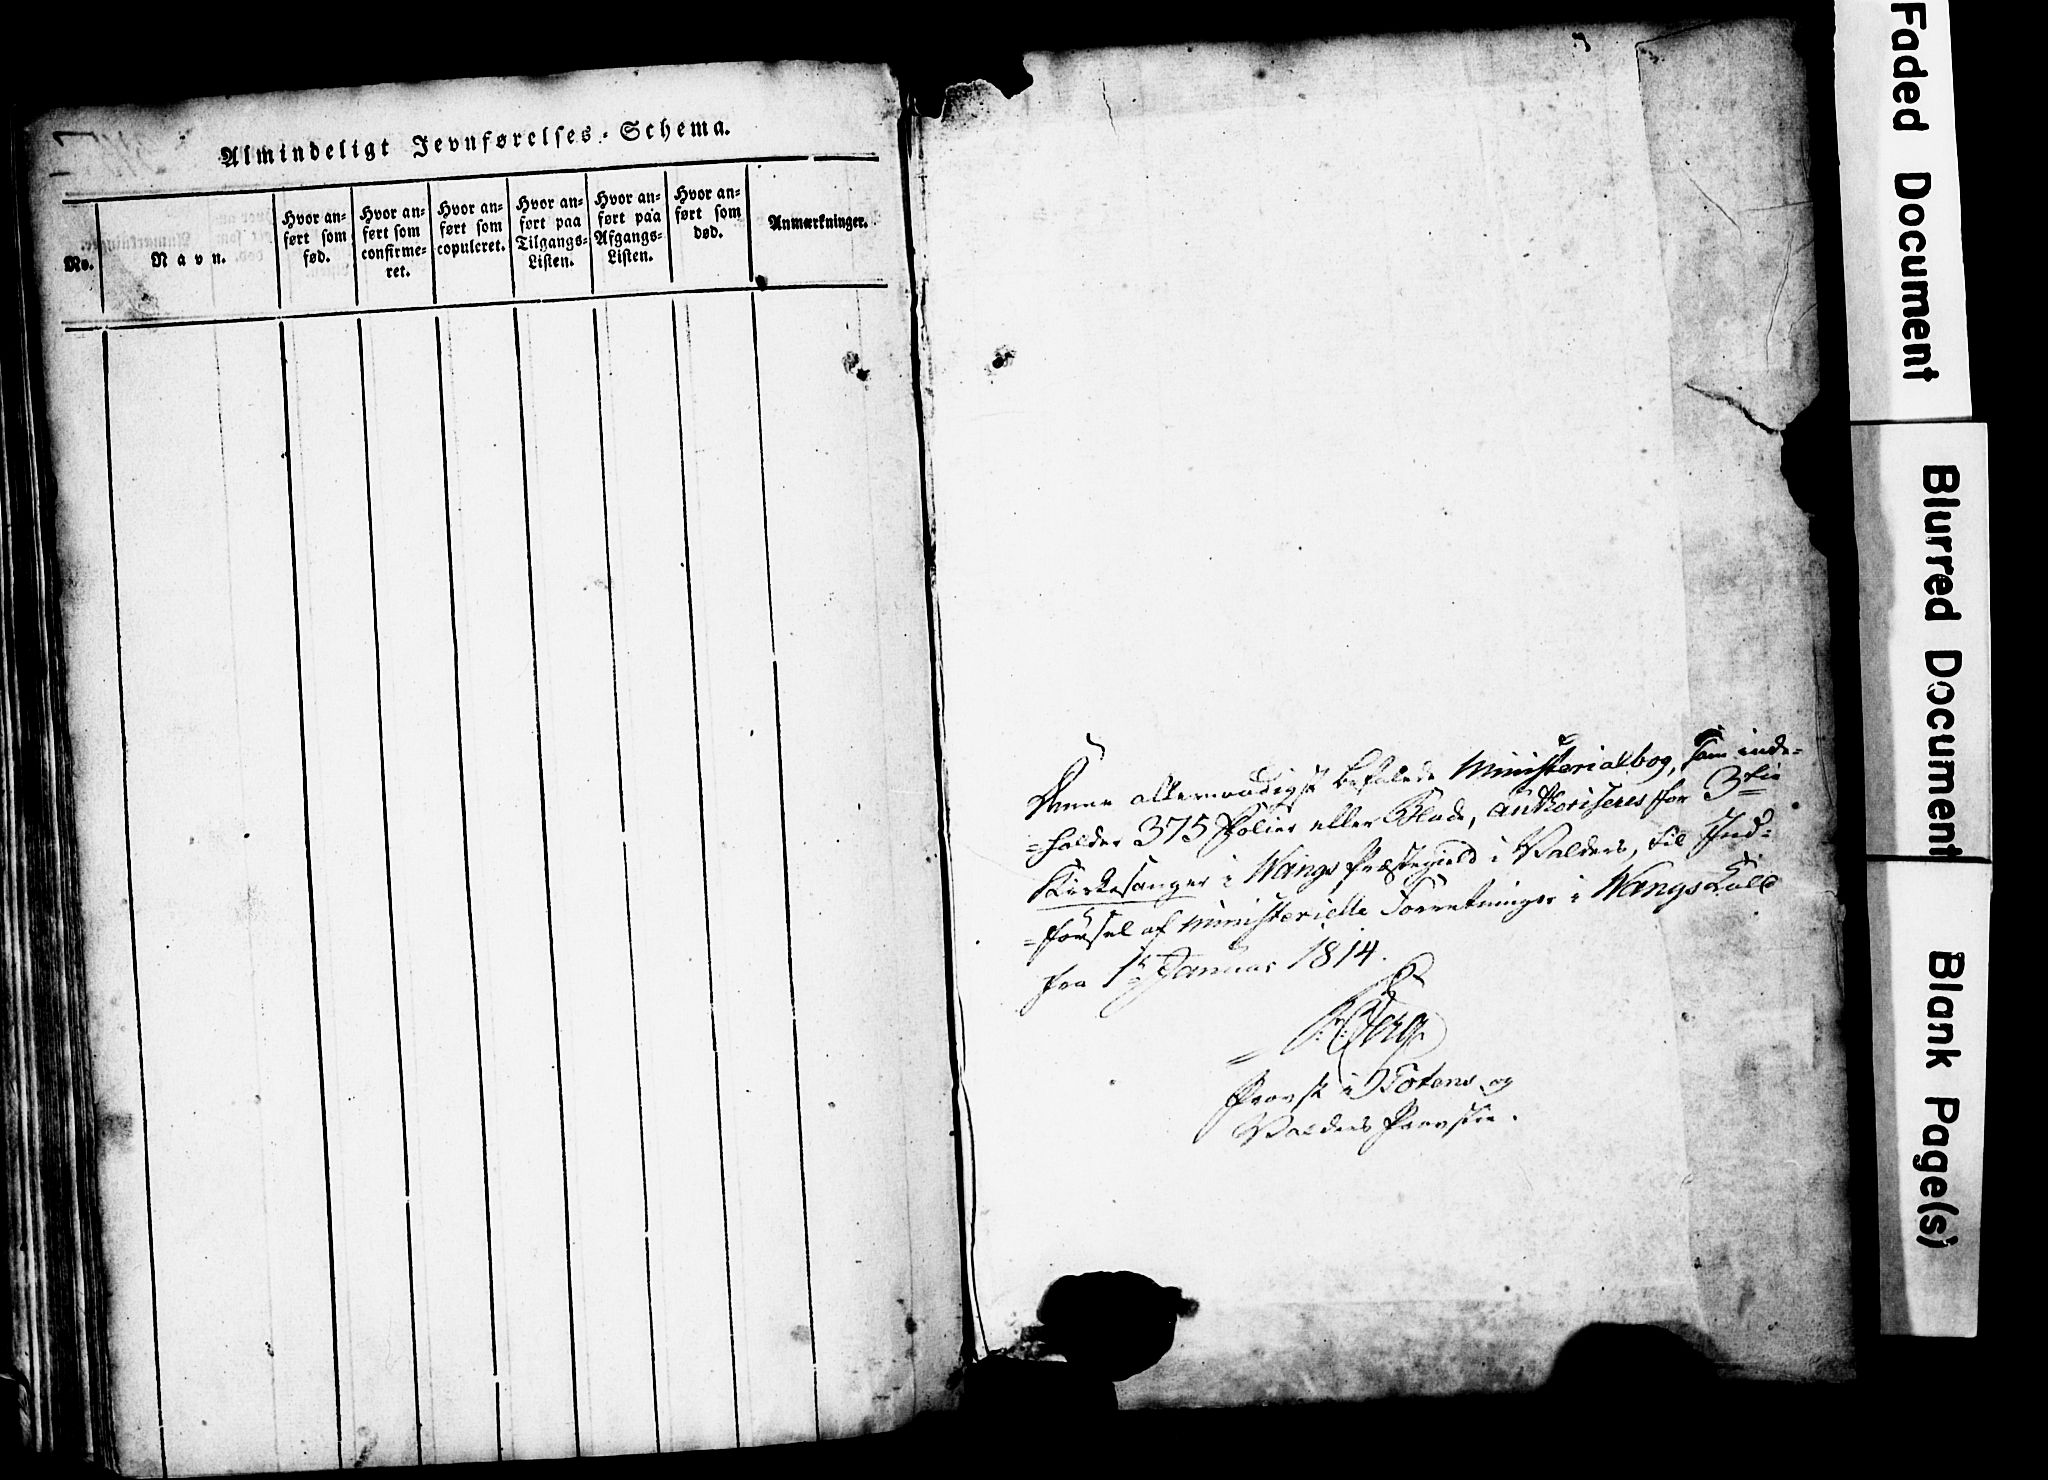 Almindeligt Jevnførelses-Schema.
No.
Navn.
Hvor an-
ført som
fød.
Hvor an-
ført som
confirme-
ret.
Hvor an-
ført som
copuleret.
Hvor an-
ført paa
Tilgangs-
Listen.
Hvor an-
ført paa
Afgangs-
Listen.
Hvor an-
ført som
død.
Anmærkninger.
Denne allernaadigst befalede Ministerialbog, som inde-
=holder 375 Folier eller Blade, authoriseres for 3die
Kirkesanger i Wangs Præstegield i Valders, til Ind-
=førsel af ministerielle Forretninger i Wangs Kald
fra 1ste Januar 1814.
Berg
Provst i Totens og
Valders Provstie.
Faded Document
Blurred Document
Blank Page(s)